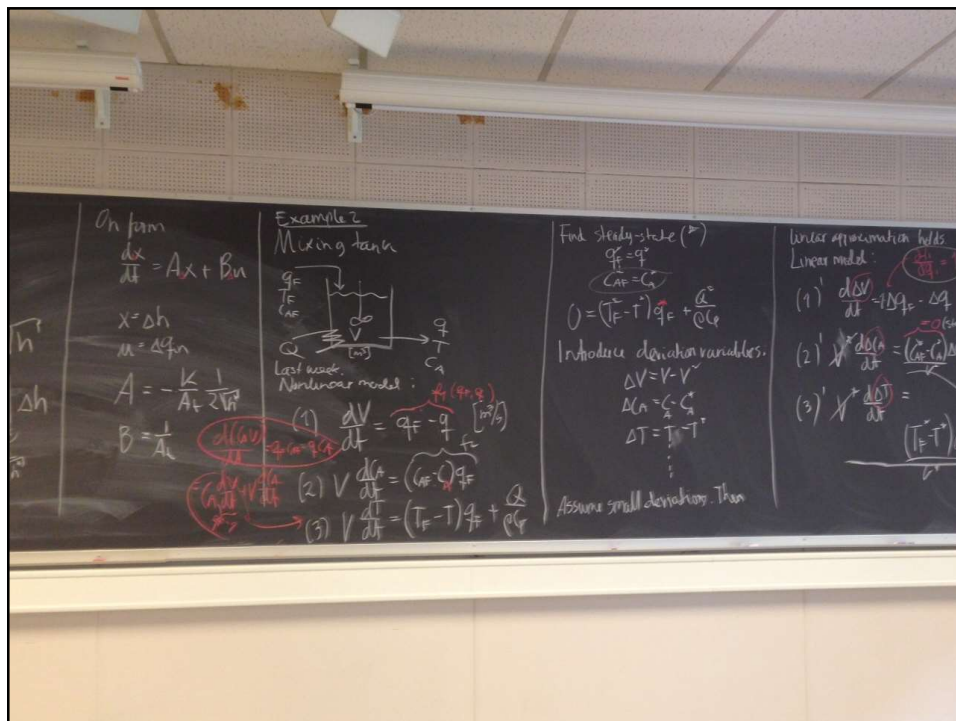 On form
dx/dt = Ax + Bu
x = Δh
u = Δq_in
A = -K/A_t 1/(2√h*)
B = 1/A_t
Example 2
Mixing tank
q_F
T_F
C_AF
V
[m³]
Q
q
T
C_A
Last week.
Nonlinear model:
(1) dV/dt = q_F - q [m³/s]
(2) V dC_A/dt = (C_AF - C_A) q_F
(3) V dT/dt = (T_F - T) q_F + Q/ρC_p
Find steady-state (*)
q_F* = q*
C_AF* = C_A*
0 = (T_F* - T*) q_F* + Q*/ρC_p
Introduce deviation variables.
ΔV = V - V*
ΔC_A = C_A - C_A*
ΔT = T - T*
Assume small deviations. Then
linear approximation holds
Linear model:
(1)' dΔV/dt = 1Δq_F - Δq
(2)' V* dΔC_A/dt = (C_AF* - C_A*) Δ
= 0
(3)' V* dΔT/dt =
(T_F* - T*)
√h
Δh